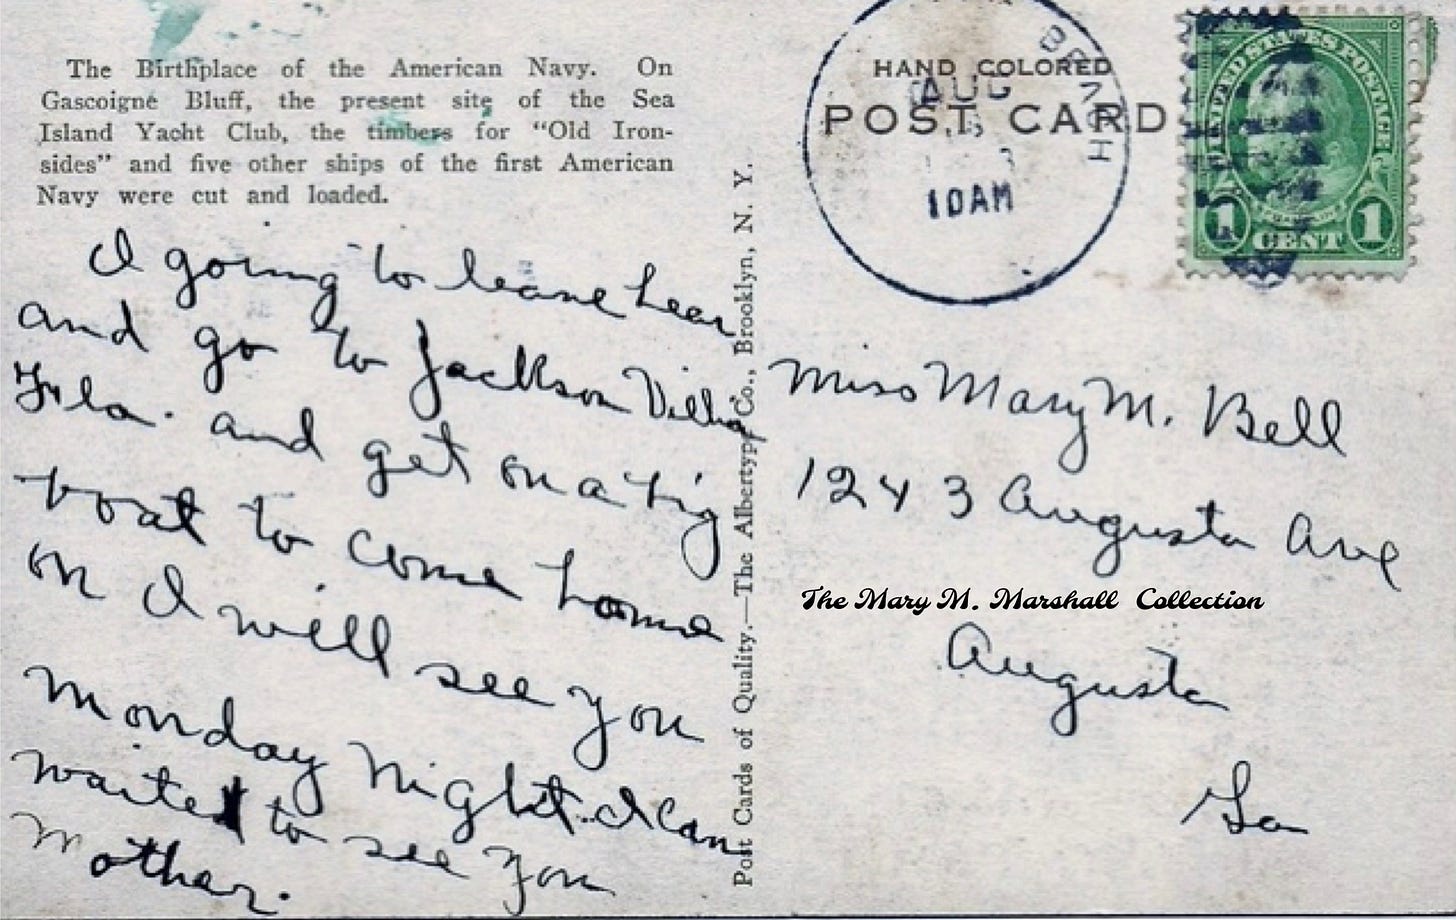 The Birthplace of the American Navy. On
Gascoigne Bluff, the present site of the Sea
Island Yacht Club, the timbers for "Old Iron-
sides" and five other ships of the first American
Navy were cut and loaded.
I going to leave hear
and go to Jackson Villia
Fla. and get on a big
boat to come home
on I will see you
Monday Night. I Can
waited to see you
Mother.
Post Cards of Quality.—The Albertype Co., Brooklyn, N. Y.
HAND COLORED
POST CARD
BEACH
AUG
10AM
UNITED STATES POSTAGE
1 CENT 1
Miss Mary M. Bell
1243 Augusta Ave
The Mary M. Marshall Collection
Augusta
Ga